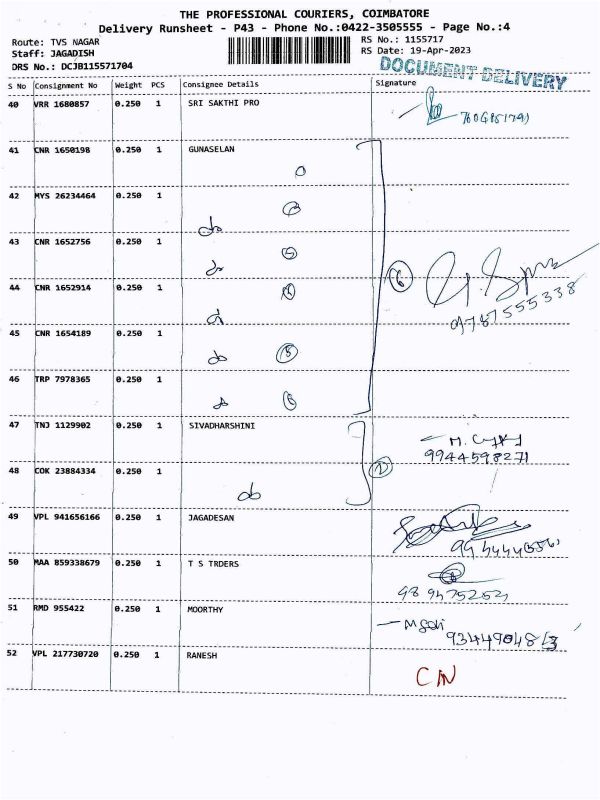 THE PROFESSIONAL COURIERS, COIMBATORE
Delivery Runsheet - P43 - Phone No.:0422-3505555 - Page No.:4
Route: TVS NAGAR RS No.: 1155717
Staff: JAGADISH RS Date: 19-Apr-2023
DRS No.: DCJB115571704
DOCUMENT DELIVERY
S No Consignment No Weight PCS Consignee Details Signature
40 VRR 1680857 0.250 1 SRI SAKTHI PRO
41 CNR 1650198 0.250 1 GUNASELAN
42 MYS 26234464 0.250 1
do
43 CNR 1652756 0.250 1
do 6
44 CNR 1652914 0.250 1
do 9787555338
45 CNR 1654189 0.250 1
do 5
46 TRP 7978365 0.250 1
do 6
47 TNJ 1129902 0.250 1 SIVADHARSHINI
9944598271
48 COK 23884334 0.250 1
do
49 VPL 941656166 0.250 1 JAGADESAN
50 MAA 859338679 0.250 1 T S TRDERS
51 RMD 955422 0.250 1 MOORTHY
52 VPL 217730720 0.250 1 RANESH
CN